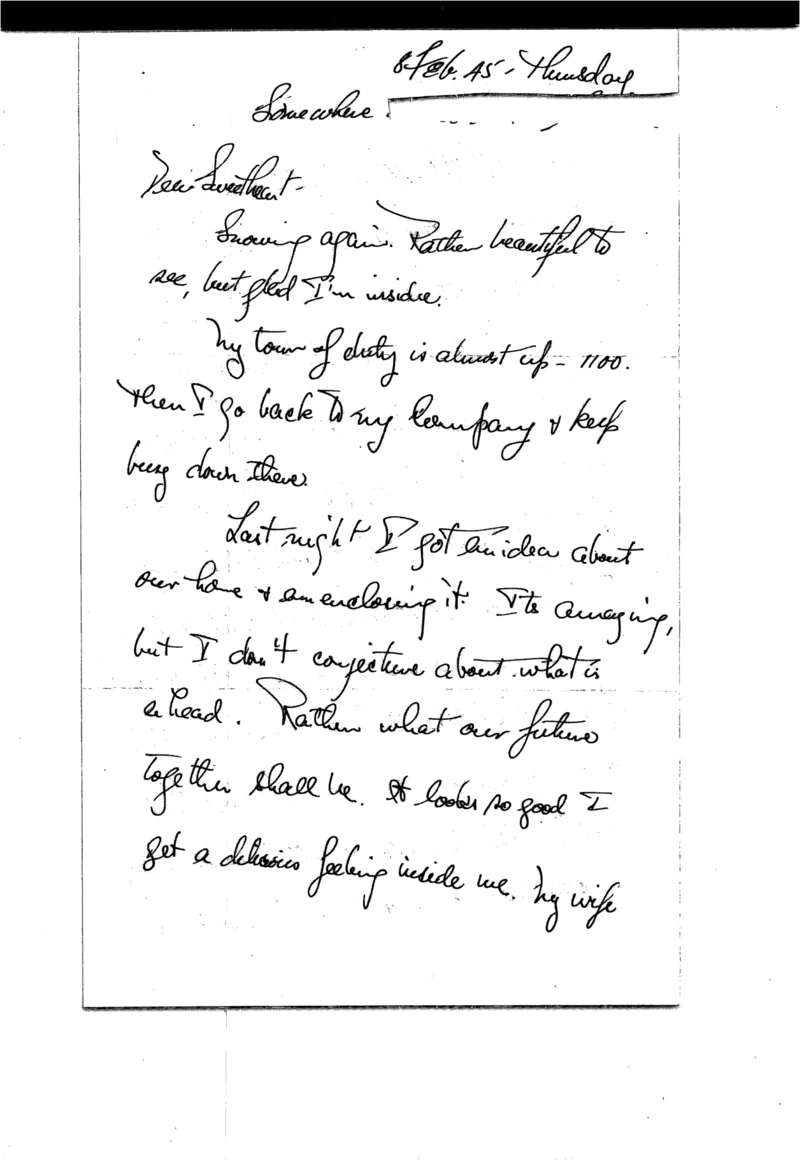 8 Feb. 45 - Thursday.
Somewhere.
Dear Sweetheart -
Snowing again. Rather beautiful to
see, but glad I'm inside.
My tour of duty is almost up - 1100.
Then I go back to my Company & keep
busy down there.
Last night I got an idea about
our home & am enclosing it. It's amazing,
but I don't conjecture about what is
ahead. Rather what our future
together shall be. It looks so good I
get a delicious feeling inside me. My wife